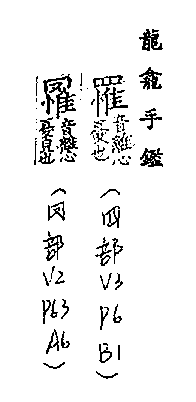 龍龕手鑑
罹 音離心憂也
(四部 V3 P6 B1)
罹 音離心憂皃也
(网部 V2 P63 A6)